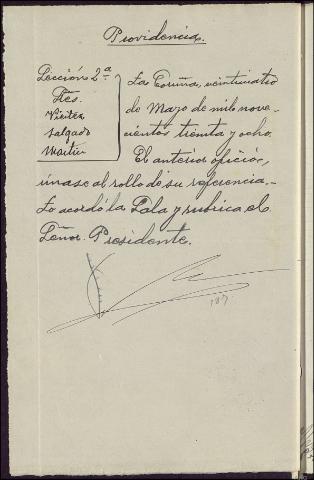 Providencia.
Sección 2ª
Sres.
Vieitez
Salgado
Martín
La Coruña, veinticuatro
de Mayo de mil nove-
cientos treinta y ocho.
El anterior oficio,
únase al rollo de su referencia.-
Lo acordó la Sala y rubrica el
Señor Presidente.
187